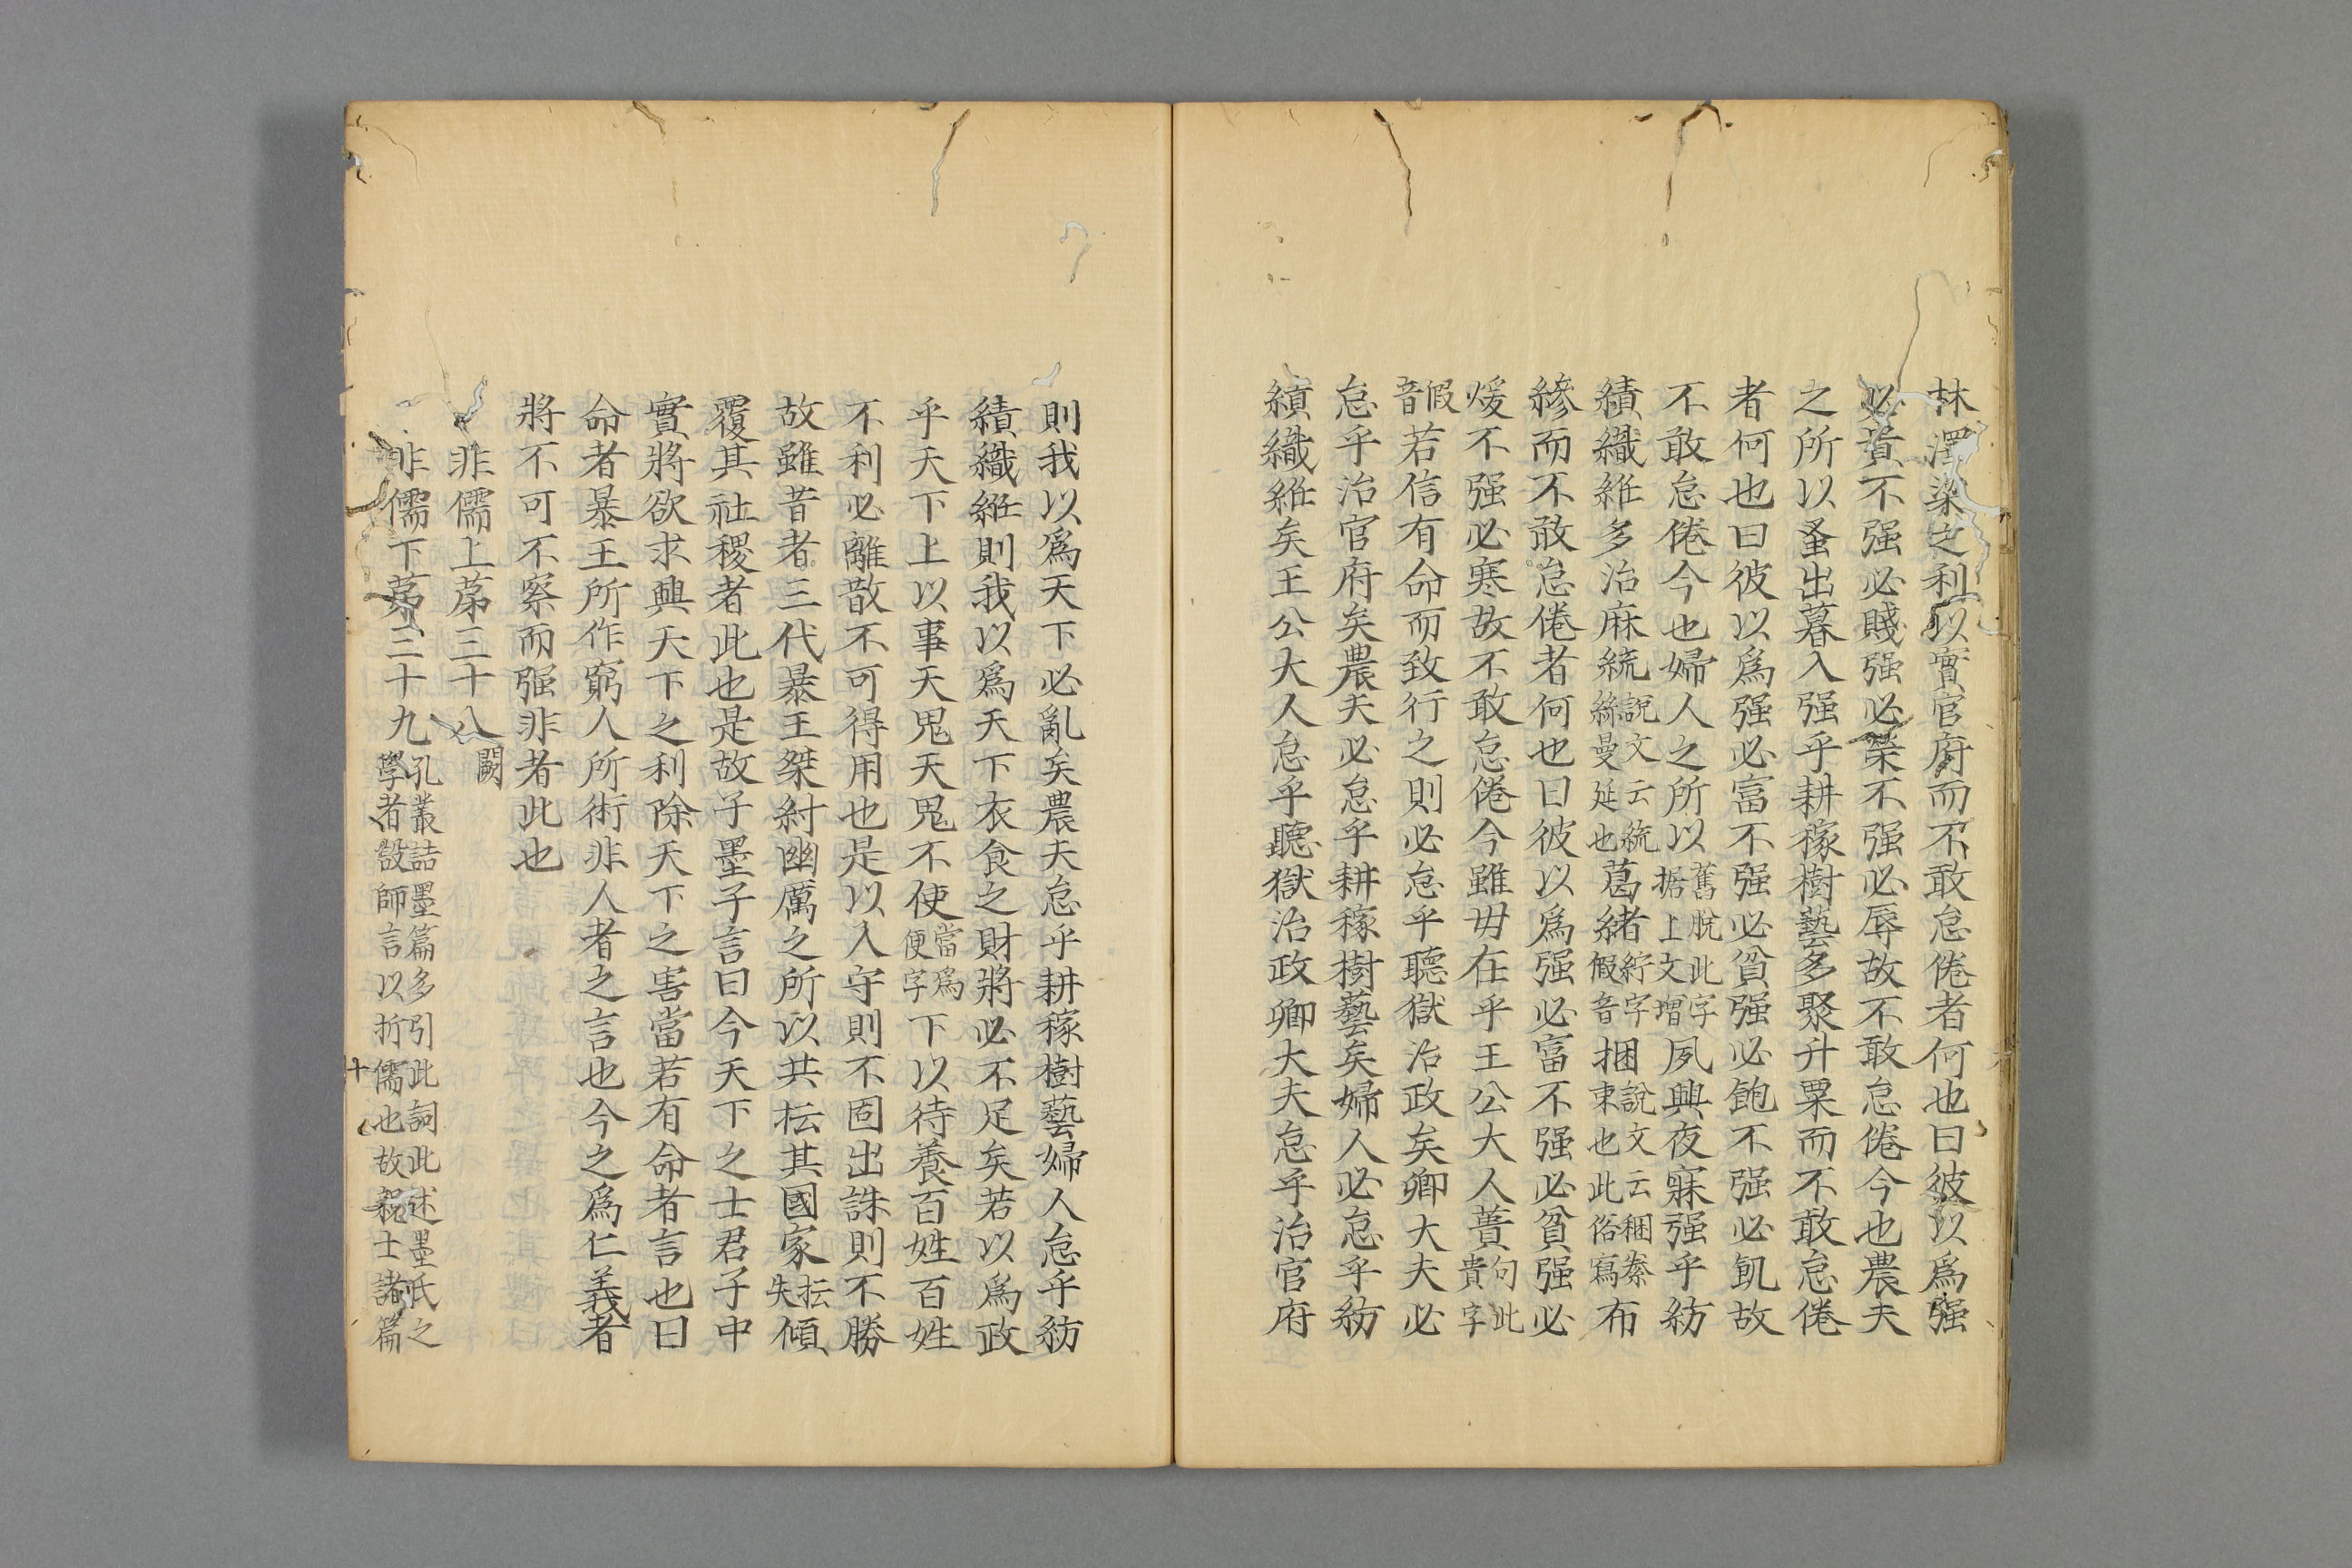 林澤梁之利以實官府而不敢怠倦者何也曰彼以為强
必貴不强必賤强必榮不强必辱故不敢怠倦今也農夫
之所以蚤出暮入强乎耕稼樹藝多聚升粟而不敢怠倦
者何也曰彼以為强必富不强必貧强必飽不强必飢故
不敢怠倦今也婦人之所以舊脫此字据上文增夙興夜寐强乎紡
績織絍多治麻統說文云統絲曼延也葛緒紵字假音捆說文云稇𣙙束也此俗寫布
縿而不敢怠倦者何也曰彼以為强必富不强必貧强必
煖不强必寒故不敢怠倦今雖毋在乎王公大人蕢句此貴字
假音若信有命而致行之則必怠乎聽獄治政矣卿大夫必
怠乎治官府矣農夫必怠乎耕稼樹藝矣婦人必怠乎紡
績織絍矣王公大人怠乎聽獄治政卿大夫怠乎治官府
則我以為天下必亂矣農夫怠乎耕稼樹藝婦人怠乎紡
績織絍則我以為天下衣食之財將必不足矣若以為政
乎天下上以事天鬼天鬼不使當為便字下以待養百姓百姓
不利必離散不可得用也是以入守則不固出誅則不勝
故雖昔者三代暴王桀紂幽厲之所以共抎其國家抎失傾
覆其社稷者此也是故子墨子言曰今天下之士君子中
實將欲求興天下之利除天下之害當若有命者言也曰
命者暴王所作窮人所術非人者之言也今之為仁義者
將不可不察而强非者此也
非儒上苐三十八闕
非儒下苐三十九孔叢詰墨篇多引此詞此述墨氏之學者設師言以折儒也故親士諸篇
十